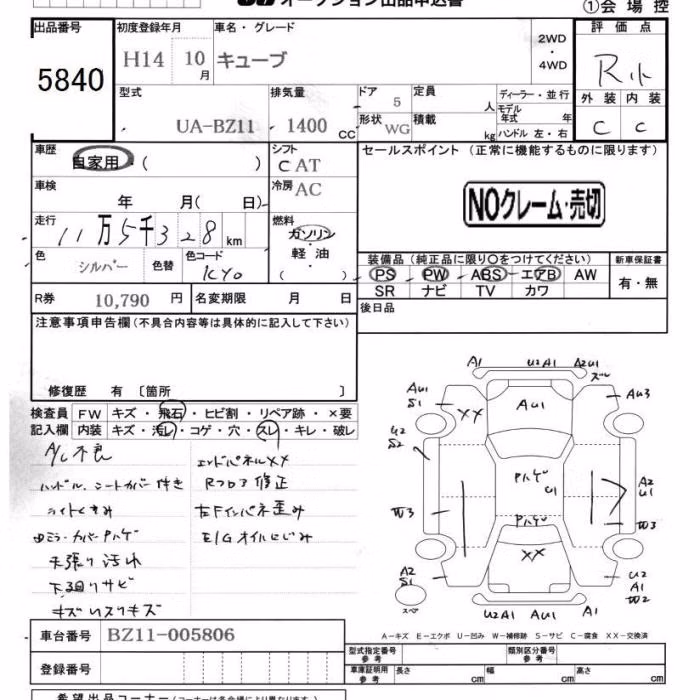 オークション出品申込書
①会場控
出品番号 5840
初度登録年月 H14 10月
車名・グレード キューブ
2WD・4WD
評価点 R
外装 内装
C C
型式 UA-BZ11
排気量 1400 CC
ドア 5
形状 WG
定員 人
積載 kg
ディーラー・並行
モデル年式 年
ハンドル 左・右
車歴 自家用・( )
シフト C AT
車検 年 月( 日)
冷房 AC
セールスポイント (正常に機能するものに限ります)
NOクレーム・売切
走行 11万5千328km
燃料 ガソリン・軽油 ( )
色 シルバー 色替 色コード KY0
装備品 (純正品に限り○をつけてください) 新車保証書
PS PW ABS エアB AW 有・無
SR ナビ TV カワ
R券 10,790 円 名変期限 月 日
後日品
注意事項申告欄 (不具合内容等は具体的に記入して下さい)
修復歴 有 〔箇所 〕
検査員 FW キズ・飛石・ヒビ割・リペア跡・×要
記入欄 内装 キズ・汚レ・コゲ・穴・スレ・キレ・破レ
A/C不良
ハンドル、シートカバー付き
ライトくすみ
ミラーカバーPハゲ
天張り汚れ
下廻りサビ
キズ
エンドパネルXX
Rフロア修正
左Fインパネ歪み
E/Gオイルにじみ
A1 U2A1 A2U1
AU1 S1 XX AU1 AU3
U2 S2
Pハゲ U1 A2 U1
W3 Pハゲ W3
A2 S1 XX U2 A1 W2
スペア U2A1 AU1 A1
A-キズ E-エクボ U-凹み W-補修跡 S-サビ C-腐食 XX-交換済
車台番号 BZ11-005806
登録番号
型式指定番号 参考 類別区分番号 参考
車庫証明用 参考 長さ cm 幅 cm 高さ cm
希望出品コーナー